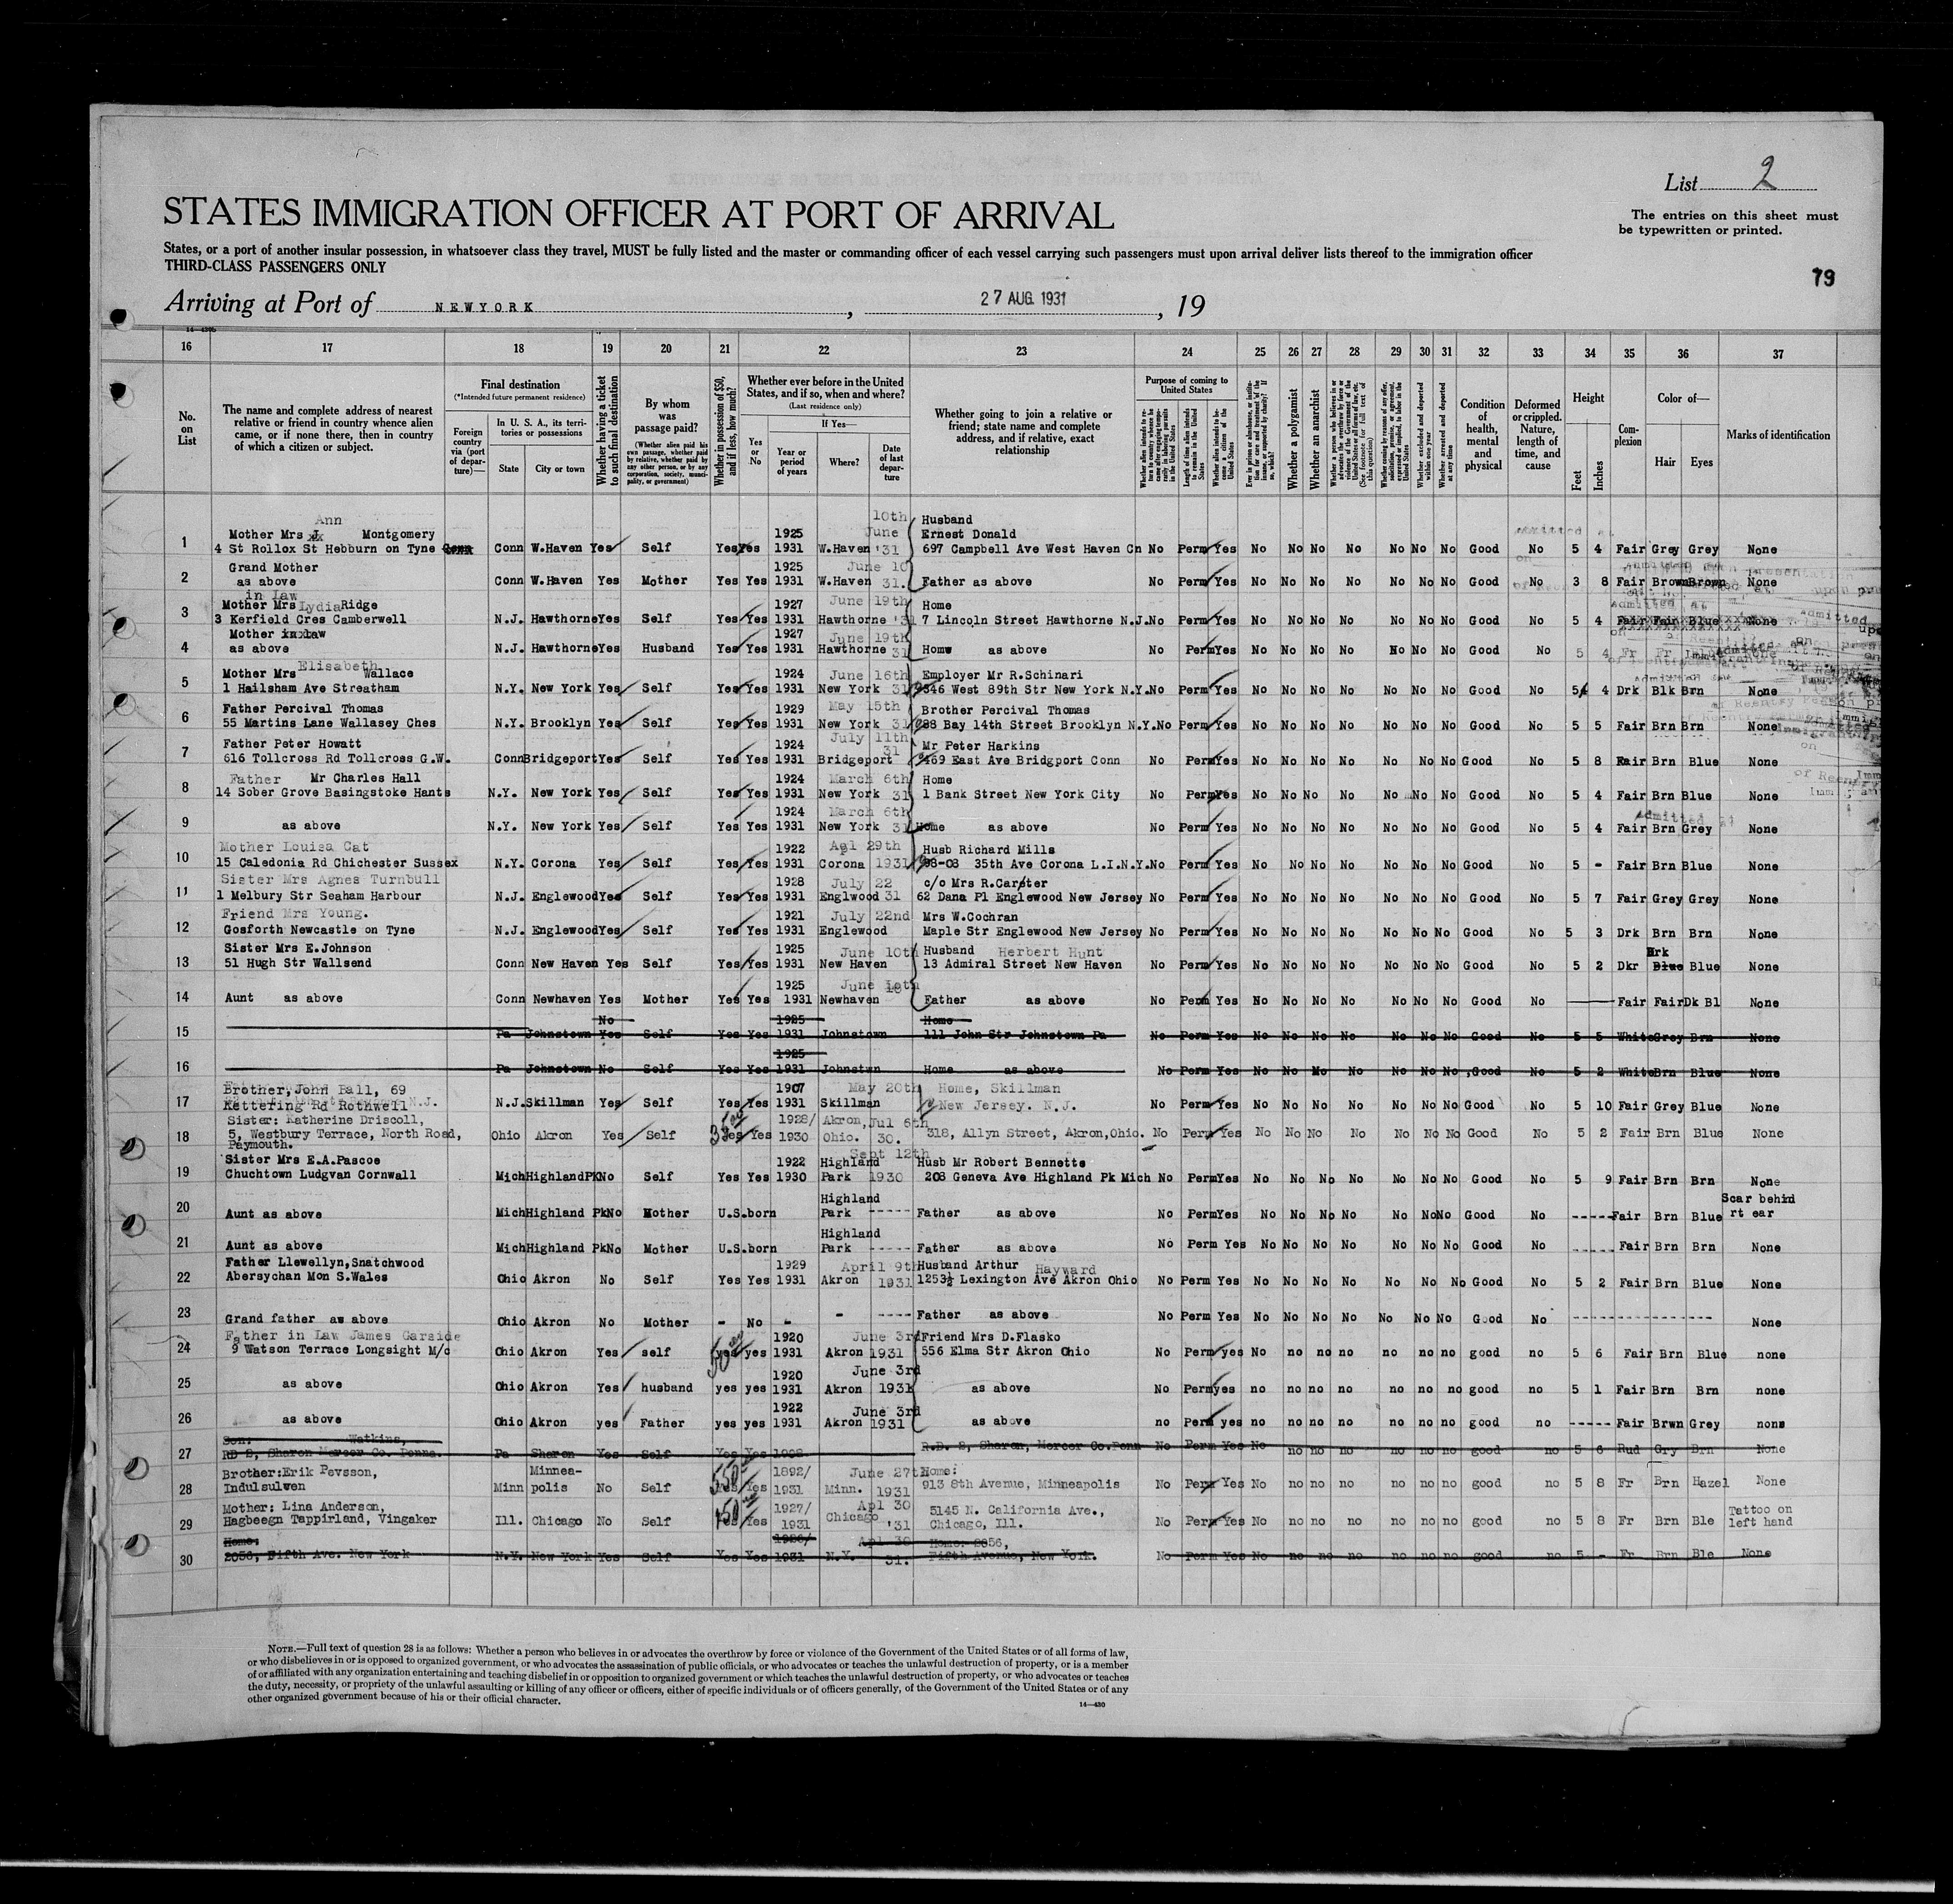 List 2
STATES IMMIGRATION OFFICER AT PORT OF ARRIVAL
The entries on this sheet must
be typewritten or printed.
States, or a port of another insular possession, in whatsoever class they travel, MUST be fully listed and the master or commanding officer of each vessel carrying such passengers must upon arrival deliver lists thereof to the immigration officer
THIRD-CLASS PASSENGERS ONLY
79
Arriving at Port of NEWYORK, 27 AUG. 1931, 19
16 17 18 19 20 21 22 23 24 25 26 27 28 29 30 31 32 33 34 35 36 37
No. on List
The name and complete address of nearest relative or friend in country whence alien came, or if none there, then in country of which a citizen or subject.
Final destination
(*Intended future permanent residence)
Foreign country via (port of departure)—
In U. S. A., its territories or possessions
State City or town
Whether having a ticket to such final destination
By whom was passage paid?
(Whether alien paid his own passage, whether paid by relative, whether paid by any other person, or by any corporation, society, municipality, or government)
Whether in possession of $50, and if less, how much?
Whether ever before in the United States, and if so, when and where?
(Last residence only)
Yes or No
If Yes—
Year or period of years Where? Date of last departure
Whether going to join a relative or friend; state name and complete address, and if relative, exact relationship
Purpose of coming to United States
Length of time alien intends to remain in the United States
Whether alien intends to become a citizen of the United States
Whether a polygamist
Whether an anarchist
Condition of health, mental and physical
Deformed or crippled. Nature, length of time, and cause
Height
Feet Inches
Complexion
Color of—
Hair Eyes
Marks of identification
1 Mother Mrs Ann Montgomery
4 St Rollox St Hebburn on Tyne Conn W.Haven Yes Self Yes Yes 1925 1931 W.Haven 10th June '31 Husband Ernest Donald 697 Campbell Ave West Haven Cn No Perm Yes No No No No No No No Good No 5 4 Fair Grey Grey None
2 Grand Mother
as above Conn W.Haven Yes Mother Yes Yes 1925 1931 W.Haven June 10 31. Father as above No Perm Yes No No No No No No No Good No 3 8 Fair Brown Brown None
3 Mother in Law Mrs Lydia Ridge
3 Kerfield Cres Camberwell N.J. Hawthorne Yes Self Yes Yes 1927 1931 Hawthorne June 19th '31 Home 7 Lincoln Street Hawthorne N.J. No Perm Yes No No No No No No No Good No 5 4 Fair Fair Blue None
4 Mother in Law
as above N.J. Hawthorne Yes Husband Yes Yes 1927 1931 Hawthorne June 19th 31 Home as above No Perm Yes No No No No No No No Good No 5 4 Fr Fr
5 Mother Mrs Elisabeth Wallace
1 Hailsham Ave Streatham N.Y. New York Yes Self Yes Yes 1924 1931 New York June 16th 31 Employer Mr R.Schinari 346 West 89th Str New York N.Y. No Perm Yes No No No No No No No Good No 5 4 Drk Blk Brn None
6 Father Percival Thomas
55 Martins Lane Wallasey Ches N.Y. Brooklyn Yes Self Yes Yes 1929 1931 New York May 15th 31 Brother Percival Thomas 88 Bay 14th Street Brooklyn N.Y. No Perm Yes No No No No No No No Good No 5 5 Fair Brn Brn None
7 Father Peter Howatt
616 Tollcross Rd Tollcross G.W. Conn Bridgeport Yes Self Yes Yes 1924 1931 Bridgeport July 11th 31 Mr Peter Harkins 469 East Ave Bridgport Conn No Perm Yes No No No No No No No Good No 5 8 Fair Brn Blue None
8 Father Mr Charles Hall
14 Sober Grove Basingstoke Hants N.Y. New York Yes Self Yes Yes 1924 1931 New York March 6th 31 Home 1 Bank Street New York City No Perm Yes No No No No No No No Good No 5 4 Fair Brn Blue None
9 as above N.Y. New York Yes Self Yes Yes 1924 1931 New York March 6th 31 Home as above No Perm Yes No No No No No No No Good No 5 4 Fair Brn Grey None
10 Mother Louisa Cat
15 Caledonia Rd Chichester Sussex N.Y. Corona Yes Self Yes Yes 1922 1931 Corona Apl 29th 1931 Husb Richard Mills 98-03 35th Ave Corona L.I.N.Y. No Perm Yes No No No No No No No Good No 5 - Fair Brn Blue None
11 Sister Mrs Agnes Turnbull
1 Melbury Str Seaham Harbour N.J. Englewood Yes Self Yes Yes 1928 1931 Englwood July 22 31 c/o Mrs R.Carster 62 Dana Pl Englewood New Jersey No Perm Yes No No No No No No No Good No 5 7 Fair Grey Grey None
12 Friend Mrs Young.
Gosforth Newcastle on Tyne N.J. Englewood Yes Self Yes Yes 1921 1931 Englewood July 22nd Mrs W.Cochran Maple Str Englewood New Jersey No Perm Yes No No No No No No No Good No 5 3 Drk Brn Brn None
13 Sister Mrs E.Johnson
51 Hugh Str Wallsend Conn New Haven Yes Self Yes Yes 1925 1931 New Haven June 10th Husband Herbert Hunt 13 Admiral Street New Haven No Perm Yes No No No No No No No Good No 5 2 Dkr Drk Blue Blue None
14 Aunt as above Conn Newhaven Yes Mother Yes Yes 1925 1931 Newhaven June 10th Father as above No Perm Yes No No No No No No No Good No Fair Fair Dk Bl None
15 Pa Johnstown Yes No Self Yes Yes 1925 1931 Johnstown Home 111 John Str Johnstown Pa No Perm Yes No No No No No No No Good No 5 5 White Grey Brn None
16 Pa Johnstown No Self Yes Yes 1925 1931 Johnstwn Home as above No Perm Yes No No No No No No No Good No 5 2 White Brn Blue None
17 Brother, John Ball, 69
Kettering Rd Rothwell N.J. Skillman Yes Self Yes Yes 1907 1931 Skillman May 20th Home, Skillman New Jersey. N.J. No Perm Yes No No No No No No No Good No 5 10 Fair Grey Blue None
18 Sister: Katherine Driscoll,
5, Westbury Terrace, North Road,
Paymouth. Ohio Akron Yes Self Yes Yes 1928/ 1930 Akron, Ohio. Jul 6th 30. 318, Allyn Street, Akron, Ohio. No Perm Yes No No No No No No No Good No 5 2 Fair Brn Blue None
19 Sister Mrs E.A.Pascoe
Chuchtown Ludgvan Cornwall Mich Highland Pk No Self Yes Yes 1922 1930 Highland Park Sept 12th 1930 Husb Mr Robert Bennetts 208 Geneva Ave Highland Pk Mich No Perm Yes No No No No No No No Good No 5 9 Fair Brn Brn None
20 Aunt as above Mich Highland Pk No Mother U.S.born Highland Park ----- Father as above No Perm Yes No No No No No No No Good No ----- Fair Brn Blue Scar behind rt ear
21 Aunt as above Mich Highland Pk No Mother U.S.born Highland Park ----- Father as above No Perm Yes No No No No No No No Good No ----- Fair Brn Brn None
22 Father Llewellyn, Snatchwood
Abersychan Mon S.Wales Ohio Akron No Self Yes Yes 1929 1931 Akron April 9th 1931 Husband Arthur Hayward 1253½ Lexington Ave Akron Ohio No Perm Yes No No No No No No No Good No 5 2 Fair Brn Blue None
23 Grand father as above Ohio Akron No Mother - No - - ---- Father as above No Perm Yes No No No No No No No Good No ---------------- None
24 Father in Law James Garside
9 Watson Terrace Longsight M/c Ohio Akron Yes self yes yes 1920 1931 Akron June 3rd 1931 Friend Mrs D.Flasko 556 Elma Str Akron Ohio No Perm yes No no no no no no no good no 5 6 Fair Brn Blue none
25 as above Ohio Akron Yes husband yes yes 1920 1931 Akron June 3rd 1931 as above No Perm yes no no no no no no no good no 5 1 Fair Brn Brn none
26 as above Ohio Akron yes Father yes yes 1922 1931 Akron June 3rd 1931 as above no Perm yes no no no no no no no good no ----- Fair Brwn Grey none
27 Son: Watkins,
RD 8, Sharon Mercer Co. Penna. Pa Sharon Yes Self Yes Yes R.D. 8, Sharon, Mercer Co.Penn No Perm Yes No no no no no no no good no 5 6 Rud Gry Brn None
28 Brother:Erik Pevsson,
Indulsulwen Minn Minnea-polis No Self 550 Yes Yes 1892/ 1931 Minn. June 27th 1931 Home: 913 8th Avenue, Minneapolis No Perm Yes No no no no no no no good no 5 8 Fr Brn Hazel None
29 Mother: Lina Anderson,
Hagbeegn Tappirland, Vingaker Ill. Chicago No Self 150 Yes Yes 1927/ 1931 Chicago Apl 30 '31 5145 N. California Ave., Chicago, Ill. No Perm Yes No no no no no no no good no 5 8 Fr Brn Ble Tattoo on left hand
30 Home:
2056, Fifth Ave. New York N.Y. New York Yes Self Yes Yes 1931 N.Y. Apl 30 31. Home: 2056, Fifth Avenue, New York. No Perm Yes No no no no no no no good no 5 - Fr Brn Ble None
NOTE.—Full text of question 28 is as follows: Whether a person who believes in or advocates the overthrow by force or violence of the Government of the United States or of all forms of law,
or who disbelieves in or is opposed to organized government, or who advocates the assassination of public officials, or who advocates or teaches the unlawful destruction of property, or is a member
of or affiliated with any organization entertaining and teaching disbelief in or opposition to organized government or which teaches the unlawful destruction of property, or who advocates or teaches
the duty, necessity, or propriety of the unlawful assaulting or killing of any officer or officers, either of specific individuals or of officers generally, of the Government of the United States or of any
other organized government because of his or their official character.
14—430